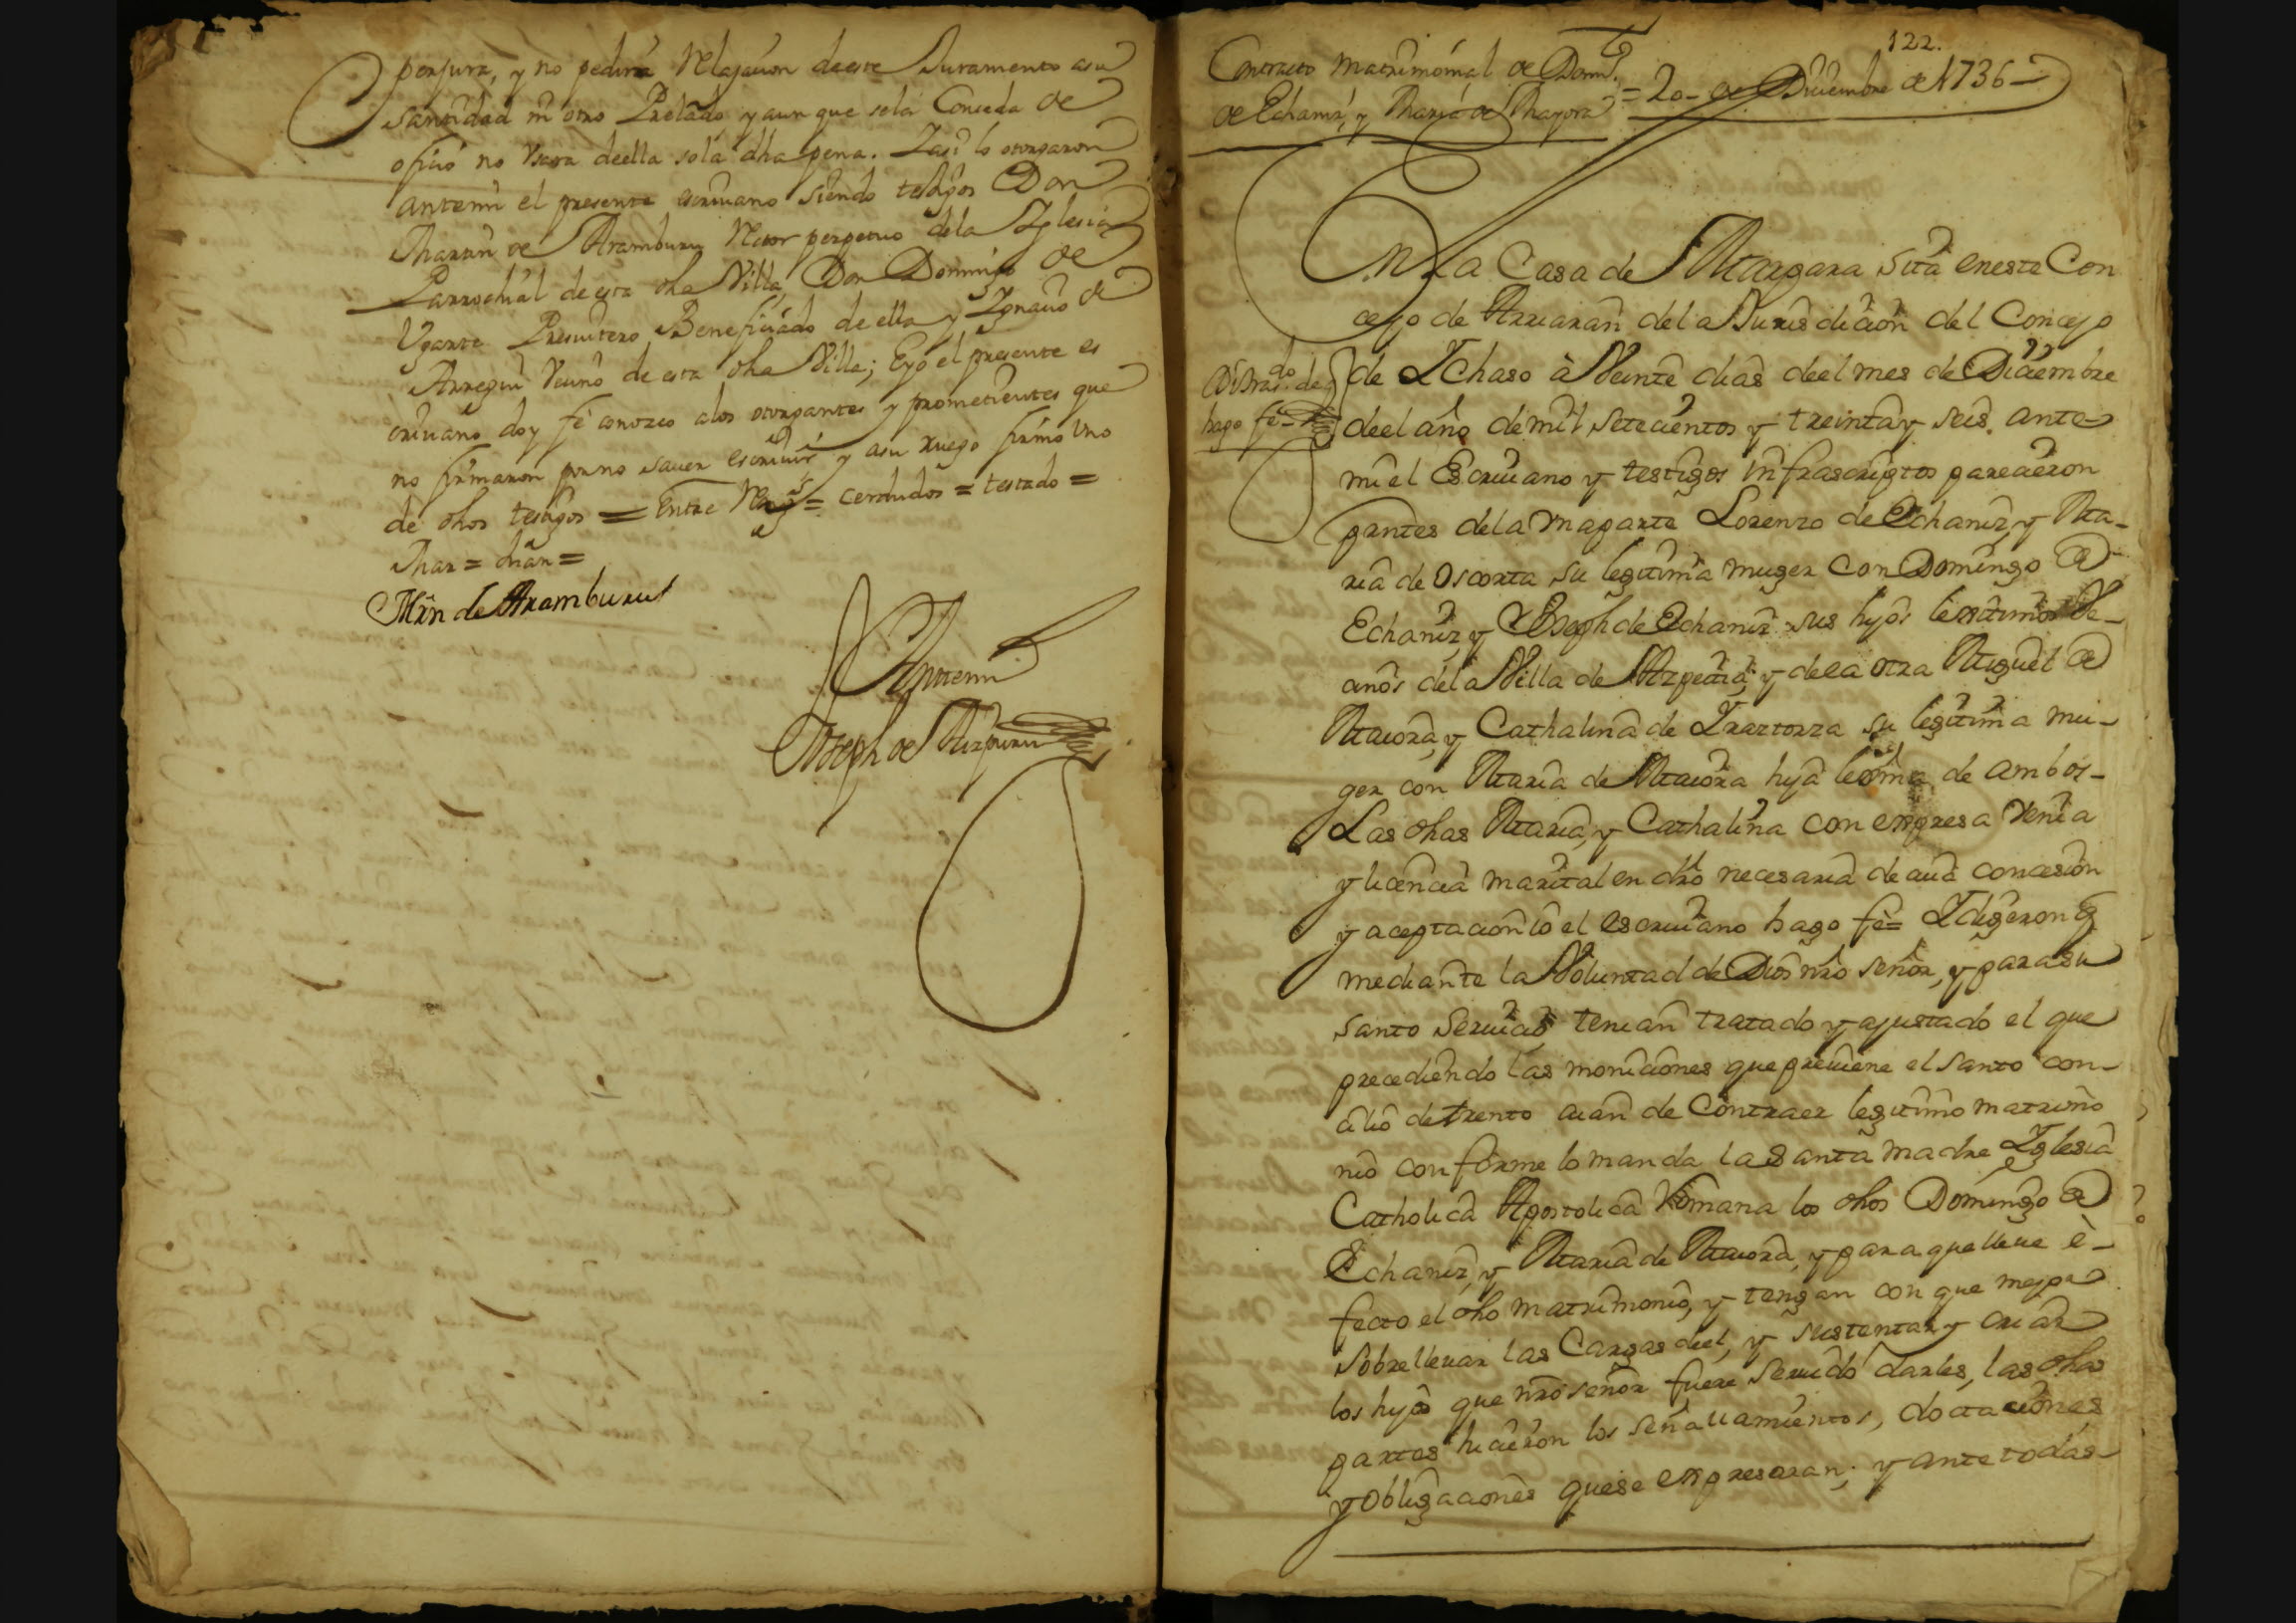 perjura, y no pedira Relajacion deeste Juramento asu
santidad ni otro Prelado y aun que sela Conceda de
oficio no Usara deella sola dha pena. Yasi lo otorgaron
antemi el presente escriuano siendo testigos Don
Martin de Aramburu Retor perpetuo dela Yglesia
Parrochial de esta dha Villa, Don Domingo de
Ugarte Presuitero Beneficiado de ella y Ygnacio de
Arregui Vecino de esta dha Villa; Eyo el presente es
criuano doy fe conozco alos otorgantes y prometientes que
no firmaron por no sauer escriuir y asu ruego firmo Uno
de dhos testigos = Entre = cerdudos = testado =
Mar = dhan =
Mrn de Aramburu
Antemi
Joseph de Aizpuru
122.
Contrato Matrimonial de Domgo.
de Echaniz, y Maria de Mayora = 20 - de Diciembre de 1736 -
En La Casa de Margara sita eneste Con
cejo de Arriaran dela Jurisdicion del Concejo
de Ychaso à Veinte dias deel mes de Diciembre
deel año de mil setecientos y treinta y seis. ante
mi el Escriuano y testigos Infrascriptos parecieron
partes dela Una parte Lorenzo de Echaniz, y Ma-
ria de Oscorta su legitima muger con Domingo de
Echaniz, y Joseph de Echaniz sus hijos legitimos Ve-
cinos dela Villa de Azpeitia; y dela otra Miguel de
Maiora, y Cathalina de Yraztorza su legitima mu-
ger con Maria de Maiora hija legma de ambos-
Las dhas Maria, y Cathalina con expresa Venia
y licencia marital en dro necesaria de cuia concesion
y aceptacion Io el escriuano hago fe= Y digeron q
mediante la Voluntad de Dios nro señor, y para su
santo seruicio tenian tratado y ajustado el que
precediendo las moniciones que preuiene el santo con-
cilio de trento aian de Contraer legitimo matrimo
nio conforme lo manda la Santa madre Yglesia
Catholica Apostolica Romana los dhos Domingo de
Echaniz, y Maria de Maiora, y para que lleue è-
fecto el dho matrimonio, y tengan con que mejor
sobrelleuar las Cargas deel, y sustentar y criar
los hijos que nro señor fuere seruido darles, las dhas
partes hicieron los señallamientos, dotaciones
y obligaciones quese expresaran; y ante todas-
hago fe-